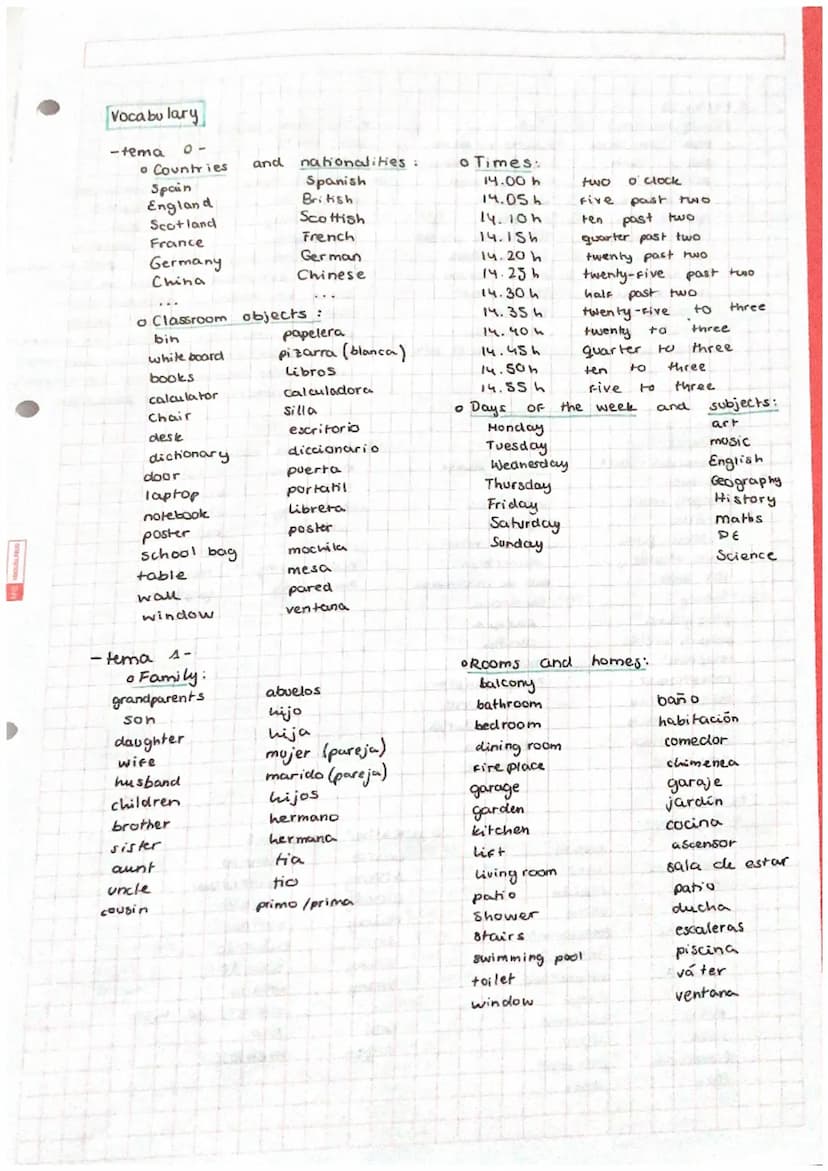 Vocabulary
-tema 0-
o Countries and nationalities:
Spain Spanish
England British
Scotland Scottish
France French
Germany German
China Chinese
... ...
o Classroom objects:
bin papelera
white board pizarra (blanca)
books Libros
calculator calculadora
Chair silla
desk escritorio
dictionary diccionario
door puerta
laptop portatil
notebook Libreta
poster poster
school bag mochila
table mesa
wall pared
window ventana
o Times:
14.00 h two o'clock
14.05 h five past two
14.10 h ten past two
14.15 h quarter past two
14.20 h twenty past two
14.25 h twenty-five past two
14.30 h half past two
14.35 h twenty-five to three
14.40 h twenty to three
14.45 h quarter to three
14.50 h ten to three
14.55 h five to three
o Days of the week and subjects:
Monday art
Tuesday music
Wednesday English
Thursday Geography
Friday History
Saturday maths
Sunday PE
Science
-tema 1-
o Family:
grandparents abuelos
son hijo
daughter hija
wife mujer (pareja)
husband marido (pareja)
children hijos
brother hermano
sister hermana
aunt tia
uncle tio
cousin primo/prima
o Rooms and homes:
balcony
bathroom baño
bedroom habitación
dining room comedor
fireplace chimenea
garage garaje
garden jardín
kitchen cocina
lift ascensor
living room sala de estar
patio patio
shower ducha
stairs escaleras
swimming pool piscina
toilet váter
window ventana